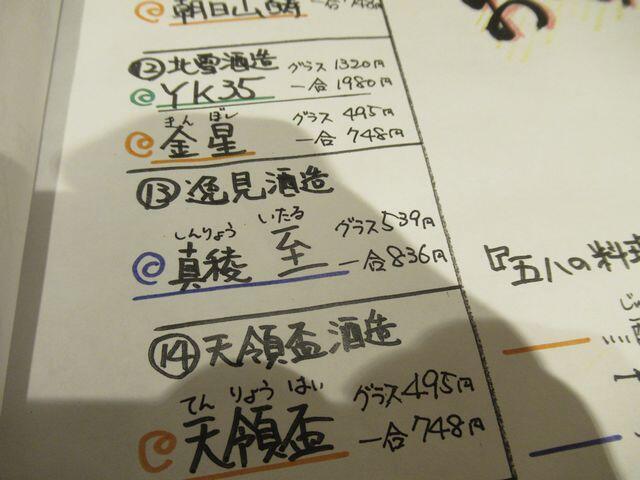 朝日山 一合748円
⑫北雪酒造 グラス1320円
YK35 一合1980円
きんぼし グラス495円
金星 一合748円
⑬逸見酒造
しんりょう いたる グラス539円
真稜 至 一合836円
⑭天領盃酒造
てんりょうはい グラス495円
天領盃 一合748円
『五八の料理